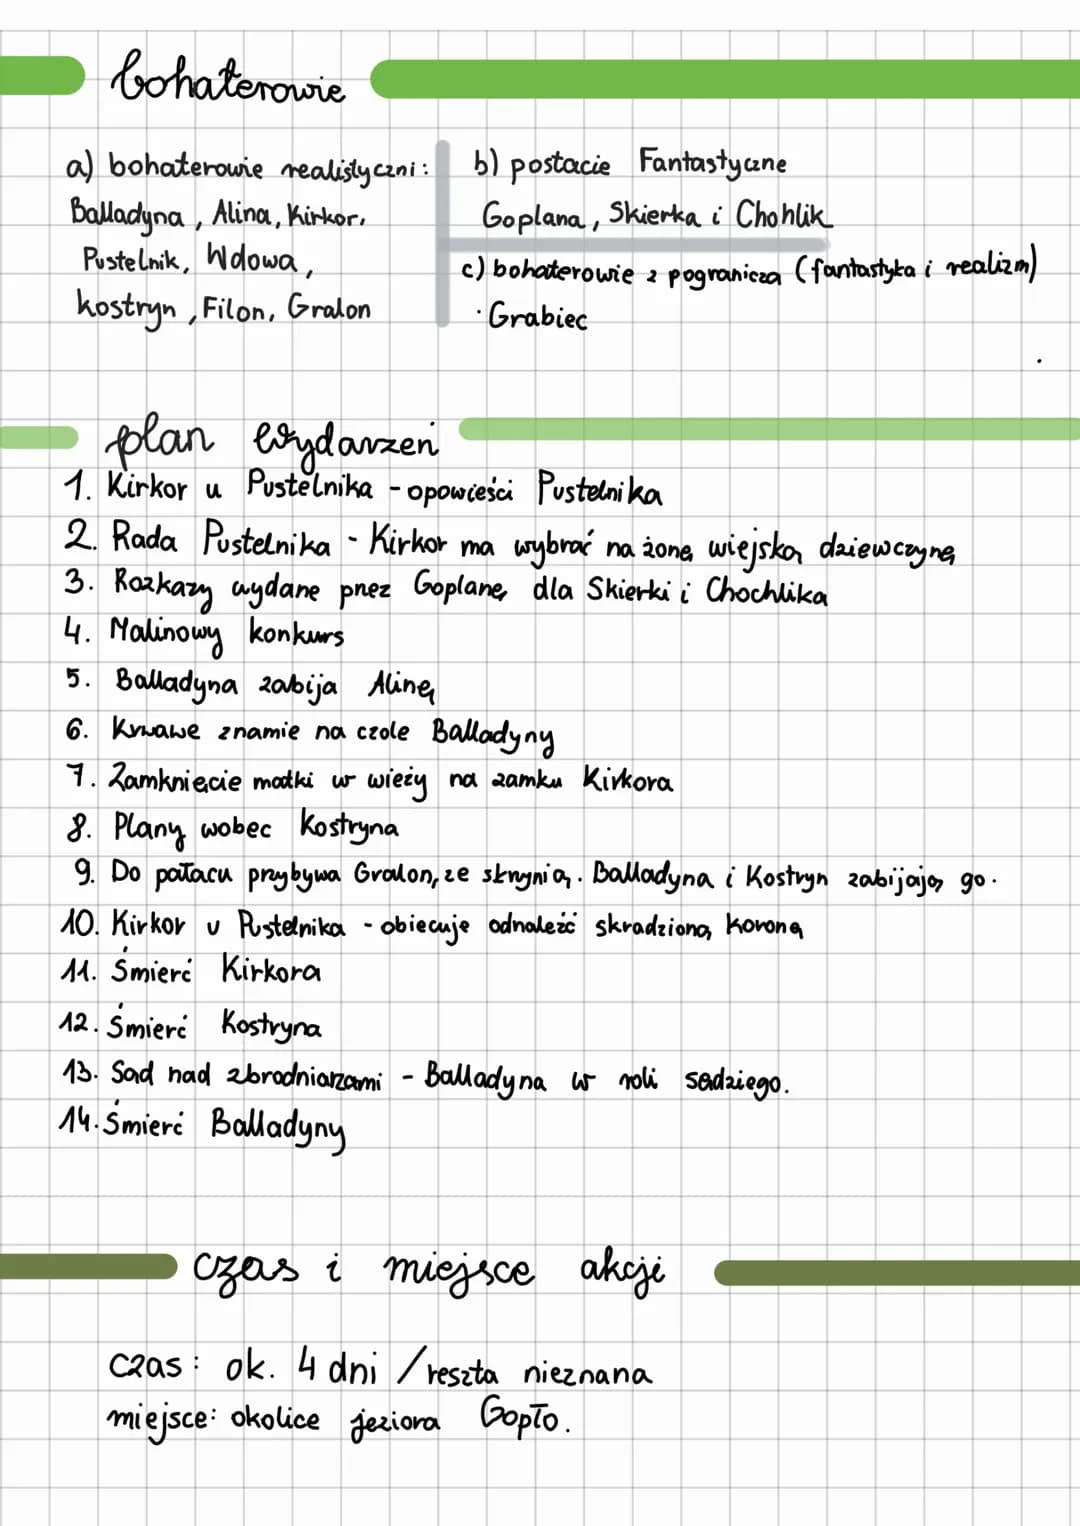 bohaterowie
a) bohaterowie realistyczni:
Balladyna, Alina, Kirkor,
Pustelnik, Wdowa,
kostryn, Filon, Gralon
b) postacie Fantastyczne
Goplana, Skierka i Chohlik
c) bohaterowie z pogranicza (fantastyka i realizm)
· Grabiec
plan wydarzeń
1. Kirkor u Pustelnika - opowieści Pustelnika
2. Rada Pustelnika - Kirkor ma wybrać na żonę wiejską dziewczynę
3. Rozkazy wydane przez Goplanę dla Skierki i Chochlika
4. Malinowy konkurs
5. Balladyna zabija Alinę
6. Krwawe znamie na czole Balladyny
7. Zamknięcie matki w wieży na zamku Kirkora
8. Plany wobec Kostryna
9. Do pałacu przybywa Gralon, ze skrzynią. Balladyna i Kostryn zabijają go.
10. Kirkor u Pustelnika - obiecuje odnaleźć skradzioną koronę
11. Śmierć Kirkora
12. Śmierć Kostryna
13. Sąd nad zbrodniarzami - Balladyna w roli sędziego.
14. Śmierć Balladyny
czas i miejsce akcji
czas: ok. 4 dni / reszta nieznana
miejsce: okolice jeziora Gopło.